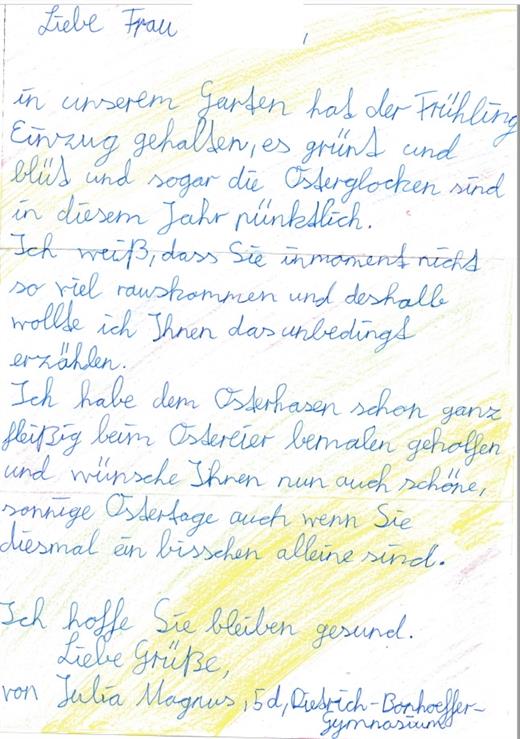 Liebe Frau ,
in unserem Garten hat der Frühling
Einzug gehalten, es grünt und
blüt und sogar die Osterglocken sind
in diesem Jahr pünktlich.
Ich weiß, dass Sie inmoment nicht
so viel rauskommen und deshalb
wollte ich Ihnen das unbedingt
erzählen.
Ich habe dem Osterhasen schon ganz
fleißig beim Ostereier bemalen geholfen
und wünsche Ihnen nun auch schöne,
sonnige Ostertage auch wenn Sie
diesmal ein bisschen alleine sind.
Ich hoffe Sie bleiben gesund.
Liebe Grüße,
von Julia Magnus, 5d, Dietrich-Bonhoeffer-
Gymnasium